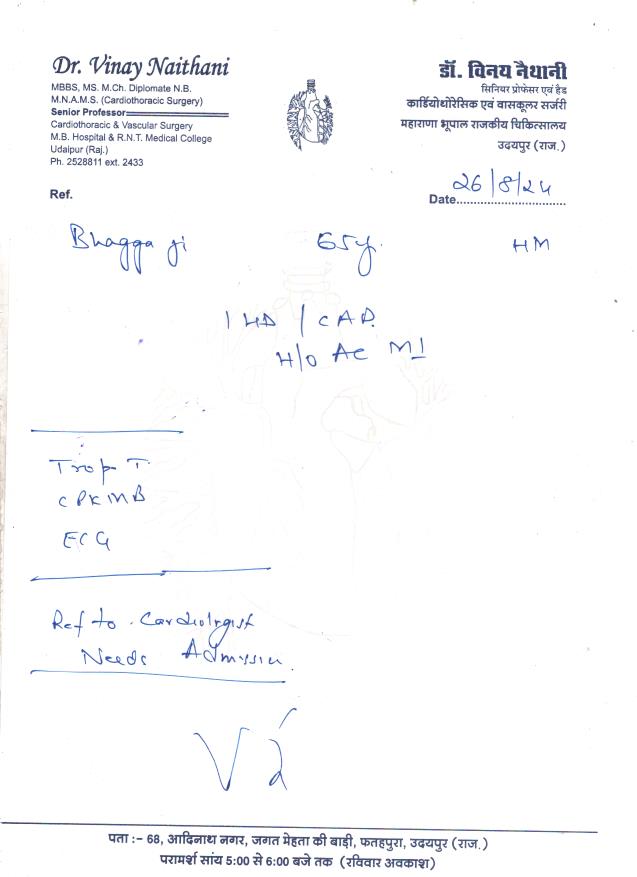 Dr. Vinay Naithani
MBBS, MS. M.Ch. Diplomate N.B.
M.N.A.M.S. (Cardiothoracic Surgery)
Senior Professor
Cardiothoracic & Vascular Surgery
M.B. Hospital & R.N.T. Medical College
Udaipur (Raj.)
Ph. 2528811 ext. 2433
डॉ. विनय नैथानी
सिनियर प्रोफेसर एवं हैड
कार्डियोथोरेसिक एवं वासकूलर सर्जरी
महाराणा भूपाल राजकीय चिकित्सालय
उदयपुर (राज.)
Ref.
Date 26/8/24
Bhagga ji 65y. HM
IHD / CAD.
H/O AC MI
Trop T.
CPKMB
ECG
Ref to Cardiologist
Needs Admission.
पता :– 68, आदिनाथ नगर, जगत मेहता की बाड़ी, फतहपुरा, उदयपुर (राज.)
परामर्श सांय 5:00 से 6:00 बजे तक (रविवार अवकाश)